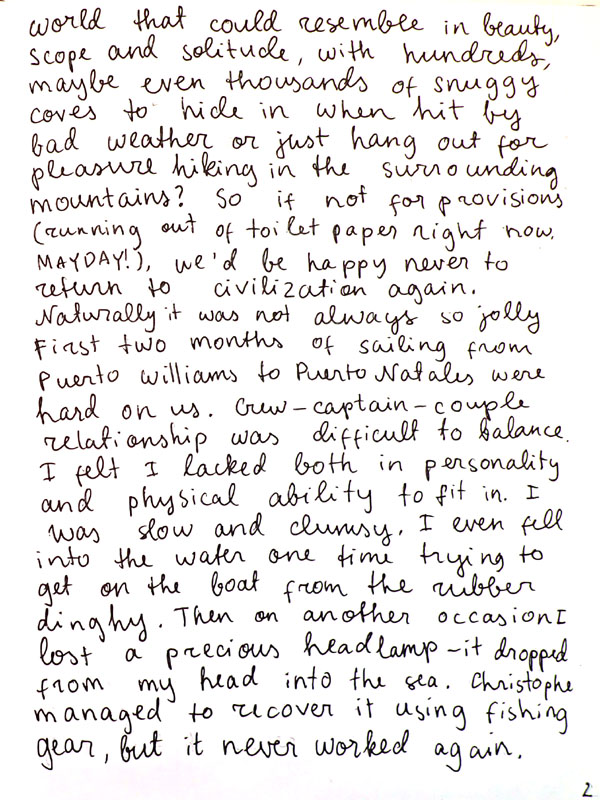 world that could resemble in beauty,
scope and solitude, with hundreds,
maybe even thousands of snuggy
coves to hide in when hit by
bad weather or just hang out for
pleasure hiking in the surrounding
mountains? So if not for provisions
(running out of toilet paper right now.
MAYDAY!), we'd be happy never to
return to civilization again.
Naturally it was not always so jolly
First two months of sailing from
Puerto Williams to Puerto Natales were
hard on us. Crew-captain-couple
relationship was difficult to balance.
I felt I lacked both in personality
and physical ability to fit in. I
was slow and clumsy. I even fell
into the water one time trying to
get on the boat from the rubber
dinghy. Then on another occasion I
lost a precious headlamp - it dropped
from my head into the sea. Christophe
managed to recover it using fishing
gear, but it never worked again.
2